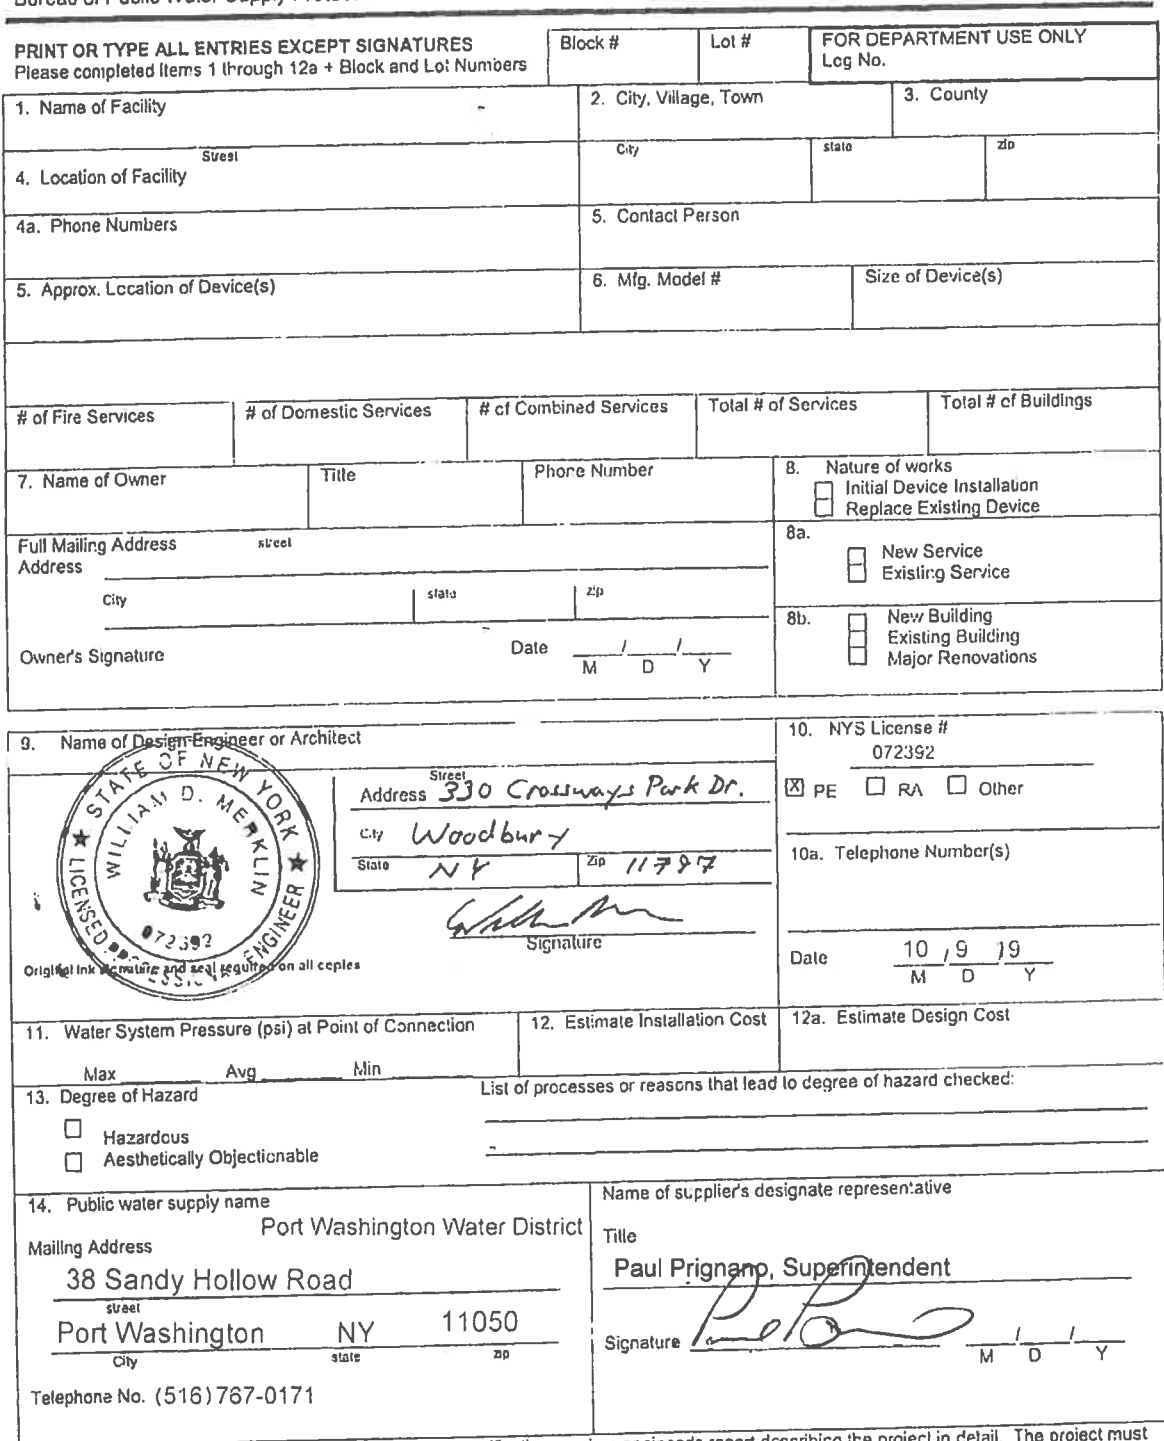 PRINT OR TYPE ALL ENTRIES EXCEPT SIGNATURES
Please completed Items 1 through 12a + Block and Lot Numbers
Block #
Lot #
FOR DEPARTMENT USE ONLY
Log No.
1. Name of Facility
2. City, Village, Town
3. County
Street
4. Location of Facility
City
state
zip
4a. Phone Numbers
5. Contact Person
5. Approx. Location of Device(s)
6. Mfg. Model #
Size of Device(s)
# of Fire Services
# of Domestic Services
# of Combined Services
Total # of Services
Total # of Buildings
7. Name of Owner
Title
Phone Number
8. Nature of works
Initial Device Installation
Replace Existing Device
Full Mailing Address
street
Address
8a.
New Service
Existing Service
City
state
zip
8b.
New Building
Existing Building
Major Renovations
Owner's Signature
Date / /
M D Y
9. Name of Design Engineer or Architect
STATE OF NEW YORK
WILLIAM D. MERKLIN
072392
LICENSED PROFESSIONAL ENGINEER
Street
Address 330 Crossways Park Dr.
City Woodbury
State NY
Zip 11797
Signature
Original ink signature and seal required on all copies
10. NYS License #
072392
X PE RA Other
10a. Telephone Number(s)
Date 10 / 9 / 19
M D Y
11. Water System Pressure (psi) at Point of Connection
Max Avg Min
12. Estimate Installation Cost
12a. Estimate Design Cost
13. Degree of Hazard
Hazardous
Aesthetically Objectionable
List of processes or reasons that lead to degree of hazard checked:
14. Public water supply name
Port Washington Water District
Mailing Address
38 Sandy Hollow Road
street
Port Washington NY 11050
City state zip
Telephone No. (516)767-0171
Name of supplier's designate representative
Title
Paul Prignano, Superintendent
Signature / /
M D Y
describing the project in detail. The project must